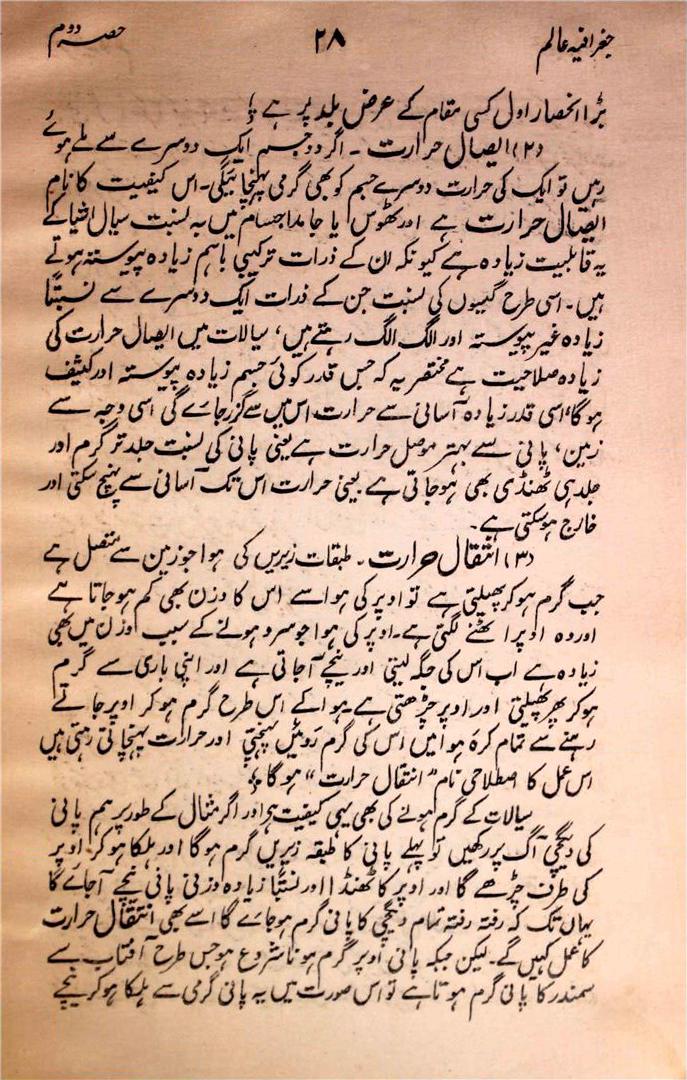 جغرافیہ عالم ۲۸ حصہ دوم
بڑا انحصار اول کسی مقام کے عرض بلد پر ہے ؛
(۲) ایصال حرارت ۔ اگر دو جسم ایک دوسرے سے ملے ہوئے
رہیں تو ایک کی حرارت دوسرے جسم کو بھی گرمی پہنچائیگی۔ اس کیفیت کا نام
ایصال حرارت ہے اور ٹھوس یا جامد اجسام میں بہ نسبت سیال اشیا کے
یہ قابلیت زیادہ ہے کیونکہ ان کے ذرات ترکیبی باہم زیادہ پیوستہ ہوتے
ہیں۔ اسی طرح گیسوں کی نسبت جن کے ذرات ایک دوسرے سے نسبتًا
زیادہ غیر پیوستہ اور الگ الگ رہتے ہیں، سیالات میں ایصال حرارت کی
زیادہ صلاحیت ہے مختصر یہ کہ جس قدر کوئی جسم زیادہ پیوستہ اور کثیف
ہوگا، اسی قدر زیادہ آسانی سے حرارت اس میں سے گزر جائے گی اسی وجہ سے
زمین، پانی سے بہتر موصل حرارت ہے یعنی پانی کی نسبت جلد تو گرم اور
جلد ہی ٹھنڈی بھی ہوجاتی ہے یعنی حرارت اس تک آسانی سے پہنچ سکتی اور
خارج ہوسکتی ہے۔
(۳) انتقال حرارت ۔ طبقات زیریں کی ہوا جو زمین سے متصل ہے
جب گرم ہوکر پھیلتی ہے تو اوپر کی ہوا سے اس کا وزن بھی کم ہوجاتا ہے
اور وہ اوپر اٹھنے لگتی ہے۔ اوپر کی ہوا جو سرد ہونے کے سبب وزن میں بھی
زیادہ ہے اب اس کی جگہ لیتی اور نیچے آجاتی ہے اور اپنی باری سے گرم
ہوکر پھر پھیلتی اور اوپر چڑھتی ہے۔ ہوا کے اس طرح گرم ہوکر اوپر جاتے
رہنے سے تمام کرۂ ہوا میں اس کی گرم رَویں پہنچتی اور حرارت پہنچاتی رہتی ہیں
اس عمل کا اصطلاحی نام "انتقال حرارت" ہوگا ؛
سیالات کے گرم ہونے کی بھی یہی کیفیت ہے اور اگر مثال کے طور پر ہم پانی
کی دیگچی آگ پر رکھیں تو پہلے پانی کا طبقہ زیریں گرم ہوگا اور ہلکا ہوکر اوپر
کی طرف چڑھے گا اور اوپر کا ٹھنڈا اور نسبتًا زیادہ وزنی پانی نیچے آجائے گا
یہاں تک کہ رفتہ رفتہ تمام دیگچی کا پانی گرم ہوجائے گا اسے بھی انتقال حرارت
کا عمل کہیں گے۔ لیکن جبکہ پانی اوپر گرم ہونا شروع ہو جس طرح آفتاب سے
سمندر کا پانی گرم ہوتا ہے تو اس صورت میں یہ پانی گرمی سے ہلکا ہوکر نیچے